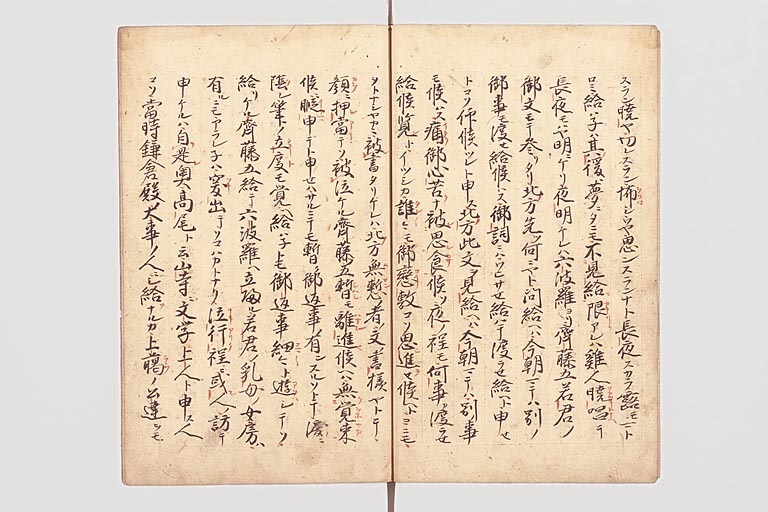 スラン暁ヤ切レスラン怖シトヤ思ンスランナト長夜スカラ露モマト
ロミ給ハネハ其侭夢ヲタニモ不見給限アレハ雞人暁唱テ
長夜モハヤ明ケリ夜明ケレハ六波羅ヨリ齊藤五若君ノ
御文モテ参タリ北方先ツ何ニヤト問給ヘハ今朝マテハ別ノ
御事モ渡セ給候ハス御詞
トコソ仰候ツレト申ス北方此文ヲ見給ヘハ今朝マテハ別ノ事
モ候ハス痛御心苦ナ被思食候ソ夜ノ程モ何事カ渡ラセ
給候覧トイツシカ誰々モ御戀敷コソ思進セ候ヘトコマ
ヲトナシヤカニ被書タリケレハ北方無慙ノ者ノ文書様ヤトテ
顔ニ押當テソ被泣ケル齊藤五暫モ離進候ヘハ無覚束
候暇申テト申セハサルニテモ暫御返事ノ有ンスルソトテ涙ニ
隠レ筆ノ立度モ覚ヘ給ハネトモ御返事細々ト遊シテソ
給リケル齊藤五給テ六波羅ヘ立帰ル若君ノ乳母ノ女房ハ
有ルニモアラレネハ宴出テソコハカトナク泣行程ニ或人ノ訪テ
申ケルハ自是奥高尾ト云山寺ニ文学上人ト申ス人
コソ當時鎌倉殿大事ノ人ニシ給ナルカ上臈ノ公達ヲモ